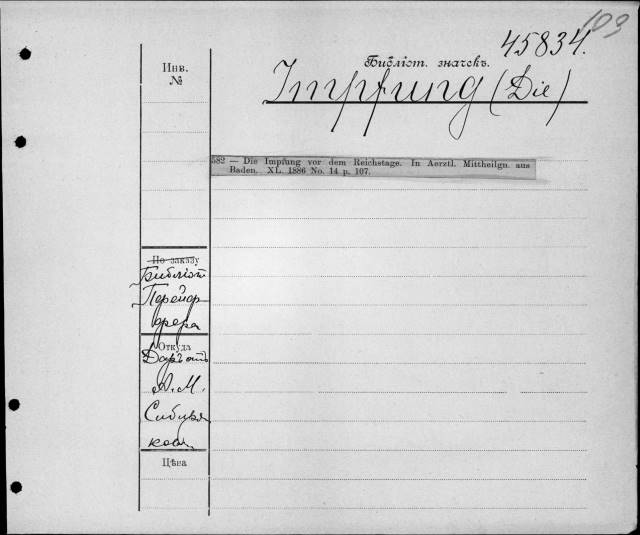 103
45834.
Инв.
№
Библіот. значекъ.
Impfung (Die)
582 — Die Impfung vor dem Reichstage. In Aerztl. Mittheilgn. aus
Baden. XL. 1886 No. 14 p. 107.
По заказу
Библіот
Откуда
Даръ отъ
А. М.
Сибиря
кова
Цѣна